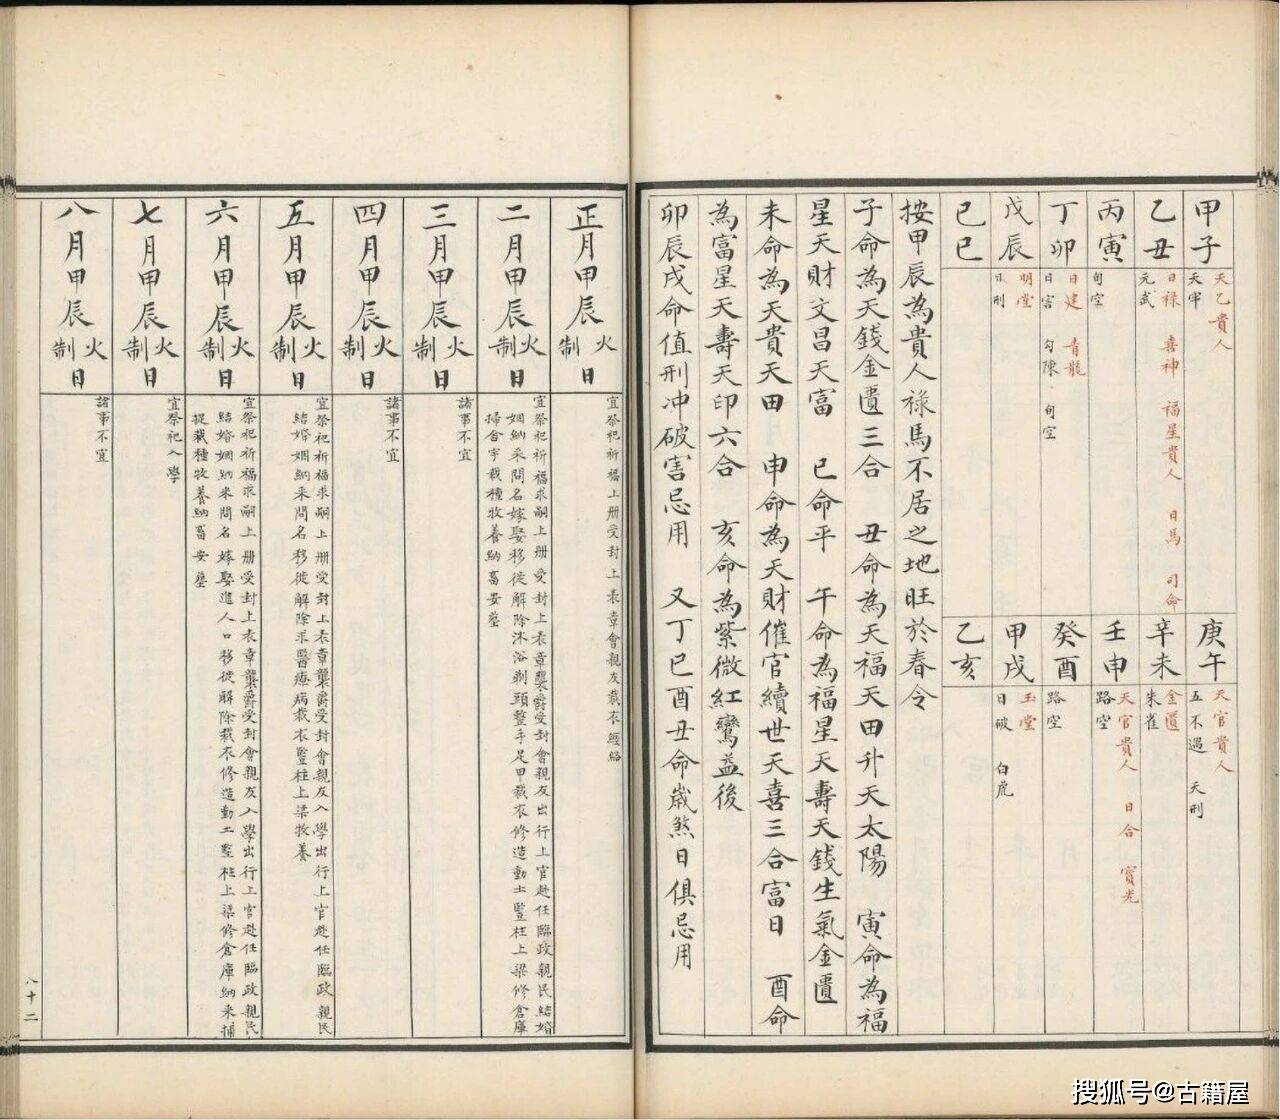 甲子
天乙貴人
天牢
乙丑
日祿 喜神 福星貴人 日馬 司命
元武
丙寅
旬空
丁卯
日建 青龍
日害 勾陳 旬空
戊辰
明堂
日刑
己巳
庚午
天官貴人
五不遇 天刑
辛未
金匱
朱雀
壬申
天官貴人 日合 寶光
路空
癸酉
路空
甲戌
玉堂
日破 白虎
乙亥
按甲辰為貴人祿馬不居之地旺於春令
子命為天錢金匱三合 丑命為天福天田升天太陽 寅命為福
星天財文昌天富 巳命平 午命為福星天壽天錢生氣金匱
未命為天貴天田 申命為天財催官續世天喜三合富日 酉命
為富星天壽天印六合 亥命為紫微紅鸞益後
卯辰戌命值刑冲破害忌用 又丁巳酉丑命歲煞日俱忌用
正月甲辰火制日
宜祭祀祈福上册受封上表章會親友裁衣經絡
二月甲辰火制日
宜祭祀祈福求嗣上册受封上表章襲爵受封會親友出行上官赴任臨政親民結婚
姻納采問名嫁娶移徙解除沐浴剃頭整手足甲裁衣修造動土豎柱上梁修倉庫
掃舍宇栽種牧養納畜安墓
三月甲辰火制日
諸事不宜
四月甲辰火制日
諸事不宜
五月甲辰火制日
宜祭祀祈福求嗣上册受封上表章襲爵受封會親友入學出行上官赴任臨政親民
結婚姻納采問名移徙解除求醫療病裁衣豎柱上梁牧養
六月甲辰火制日
宜祭祀祈福求嗣上册受封上表章襲爵受封會親友入學出行上官赴任臨政親民
結婚姻納采問名嫁娶進人口移徙解除裁衣修造動土豎柱上梁修倉庫納采補
捉栽種牧養納畜安墓
七月甲辰火制日
宜祭祀入學
八月甲辰火制日
諸事不宜
八十二
搜狐号@古籍屋